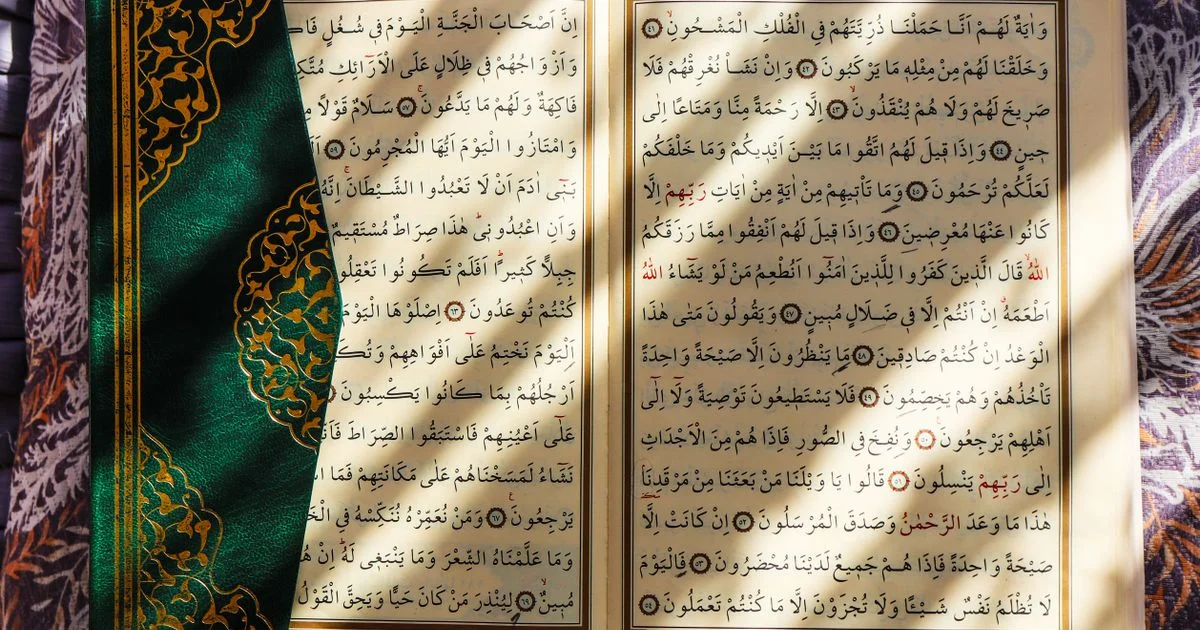 وَاٰيَةٌ لَهُمْ اَنَّا حَمَلْنَا ذُرِّيَّتَهُمْ فِي الْفُلْكِ الْمَشْحُونِۙ ﴿٤١﴾
وَخَلَقْنَا لَهُمْ مِنْ مِثْلِه۪ مَا يَرْكَبُونَ ﴿٤٢﴾ وَاِنْ نَشَأْ نُغْرِقْهُمْ فَلَا
صَر۪يخَ لَهُمْ وَلَا هُمْ يُنْقَذُونَۙ ﴿٤٣﴾ اِلَّا رَحْمَةً مِنَّا وَمَتَاعًا اِلٰى
ح۪ينٍ ﴿٤٤﴾ وَاِذَا ق۪يلَ لَهُمُ اتَّقُوا مَا بَيْنَ اَيْد۪يكُمْ وَمَا خَلْفَكُمْ
لَعَلَّكُمْ تُرْحَمُونَ ﴿٤٥﴾ وَمَا تَأْت۪يهِمْ مِنْ اٰيَةٍ مِنْ اٰيَاتِ رَبِّهِمْ اِلَّا
كَانُوا عَنْهَا مُعْرِض۪ينَ ﴿٤٦﴾ وَاِذَا ق۪يلَ لَهُمْ اَنْفِقُوا مِمَّا رَزَقَكُمُ
اللّٰهُۙ قَالَ الَّذ۪ينَ كَفَرُوا لِلَّذ۪ينَ اٰمَنُٓوا اَنُطْعِمُ مَنْ لَوْ يَشَٓاءُ اللّٰهُ
اَطْعَمَهُۗ اِنْ اَنْتُمْ اِلَّا ف۪ي ضَلَالٍ مُب۪ينٍ ﴿٤٧﴾ وَيَقُولُونَ مَتٰى هٰذَا
الْوَعْدُ اِنْ كُنْتُمْ صَادِق۪ينَ ﴿٤٨﴾ مَا يَنْظُرُونَ اِلَّا صَيْحَةً وَاحِدَةً
تَأْخُذُهُمْ وَهُمْ يَخِصِّمُونَ ﴿٤٩﴾ فَلَا يَسْتَط۪يعُونَ تَوْصِيَةً وَلَٓا اِلٰٓى
اَهْلِهِمْ يَرْجِعُونَ۟ ﴿٥٠﴾ وَنُفِخَ فِي الصُّورِ فَاِذَا هُمْ مِنَ الْاَجْدَاثِ
اِلٰى رَبِّهِمْ يَنْسِلُونَ ﴿٥١﴾ قَالُوا يَا وَيْلَنَا مَنْ بَعَثَنَا مِنْ مَرْقَدِنَاۢ
هٰذَا مَا وَعَدَ الرَّحْمٰنُ وَصَدَقَ الْمُرْسَلُونَ ﴿٥٢﴾ اِنْ كَانَتْ اِلَّا
صَيْحَةً وَاحِدَةً فَاِذَا هُمْ جَم۪يعٌ لَدَيْنَا مُحْضَرُونَ ﴿٥٣﴾ فَالْيَوْمَ
لَا تُظْلَمُ نَفْسٌ شَيْـًٔا وَلَا تُجْزَوْنَ اِلَّا مَا كُنْتُمْ تَعْمَلُونَ ﴿٥٤﴾
اِنَّ اَصْحَابَ الْجَنَّةِ الْيَوْمَ ف۪ي شُغُلٍ
وَاَزْوَاجُهُمْ ف۪ي ظِلَالٍ عَلَى الْاَرَٓائِكِ
فَاكِهَةٌ وَلَهُمْ مَا يَدَّعُونَۚ ﴿٥٧﴾ سَلَامٌ قَوْلًا
وَامْتَازُوا الْيَوْمَ اَيُّهَا الْمُجْرِمُونَ ﴿٥٩﴾
بَن۪ٓي اٰدَمَ اَنْ لَا تَعْبُدُوا الشَّيْطَانَۚ اِنَّهُ
وَاَنِ اعْبُدُون۪يۜ هٰذَا صِرَاطٌ مُسْتَق۪يمٌ
جِبِلًّا كَث۪يرًاۜ اَفَلَمْ تَكُونُوا تَعْقِلُو
كُنْتُمْ تُوعَدُونَ ﴿٦٣﴾ اِصْلَوْهَا الْيَوْمَ
اَلْيَوْمَ نَخْتِمُ عَلٰٓى اَفْوَاهِهِمْ وَتُكَ
اَرْجُلُهُمْ بِمَا كَانُوا يَكْسِبُونَ
عَلٰٓى اَعْيُنِهِمْ فَاسْتَبَقُوا الصِّرَاطَ فَاَنّٰ
نَشَٓاءُ لَمَسَخْنَاهُمْ عَلٰى مَكَانَتِهِمْ فَمَا
يَرْجِعُونَ۟ ﴿٦٧﴾ وَمَنْ نُعَمِّرْهُ نُنَكِّسْهُ فِي
وَمَا عَلَّمْنَاهُ الشِّعْرَ وَمَا يَنْبَغ۪ي لَهُۜ اِنْ
مُب۪ينٌۙ ﴿٦٩﴾ لِيُنْذِرَ مَنْ كَانَ حَيًّا وَيَحِقَّ الْقَوْلُ